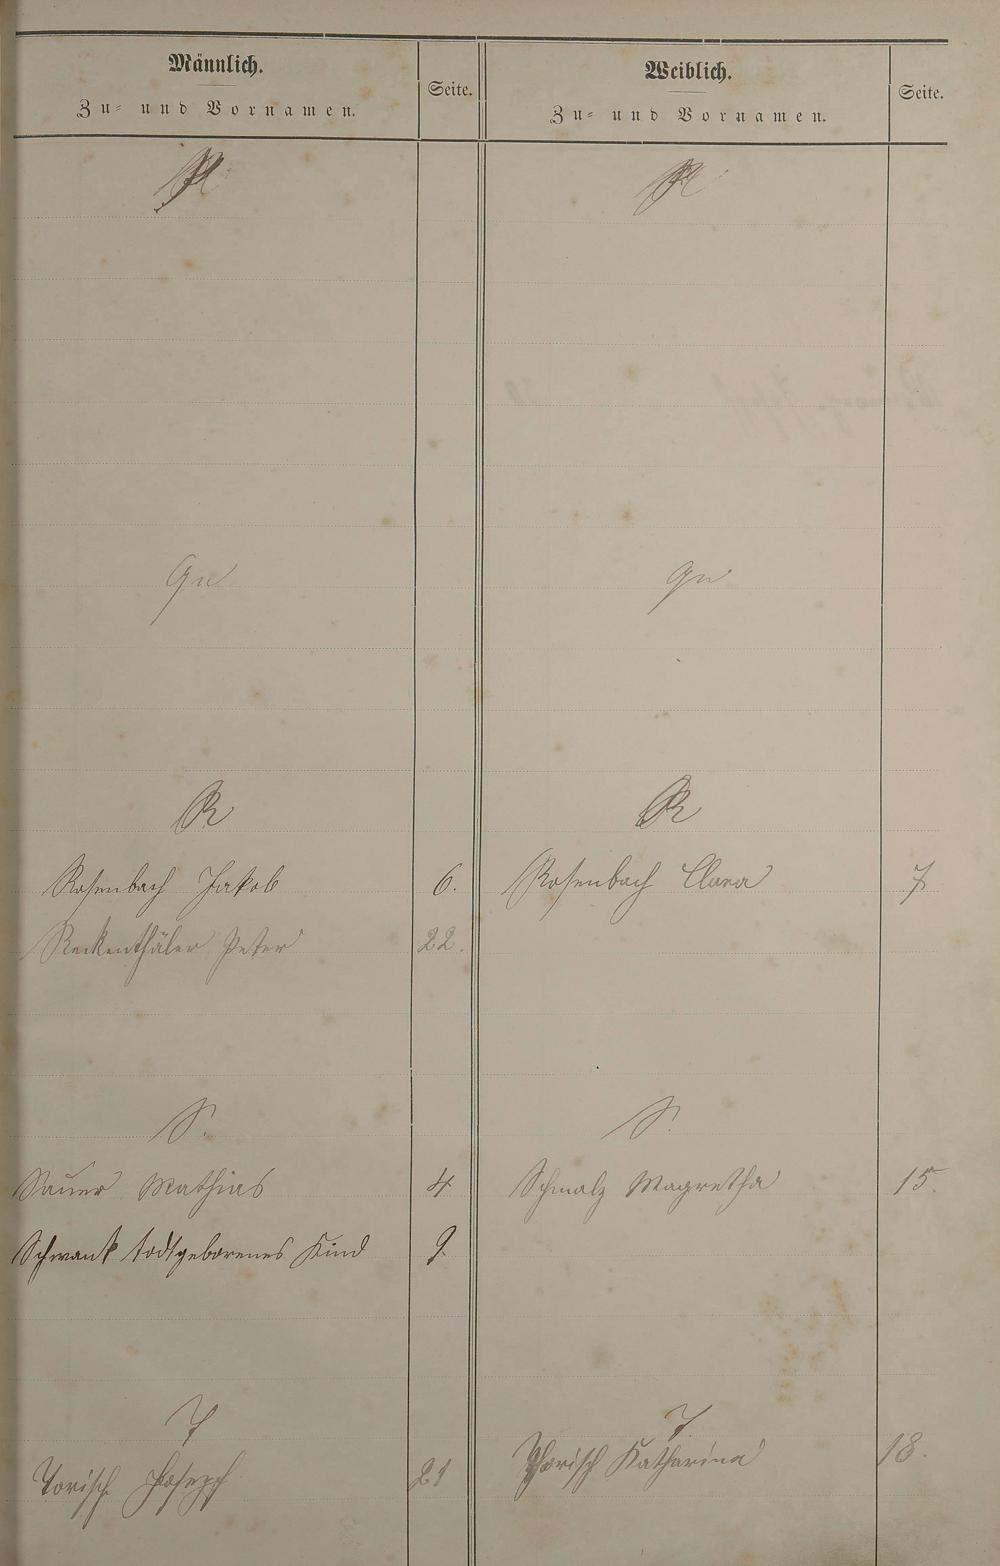 Männlich.
Zu- und Vornamen.
Seite.
Weiblich.
Zu- und Vornamen.
Seite.
P
P
Qu
Qu
R
R
Rosenbach Jakob 6.
Rosenbach Clara 7
Reckenthäler Peter 22.
S.
S.
Sauer Mathias 4
Schmalz Magretha 15.
Schwank todtgeborenes Kind 9.
T
T.
Torisch Joseph 21
Thorisch Katharina 18.